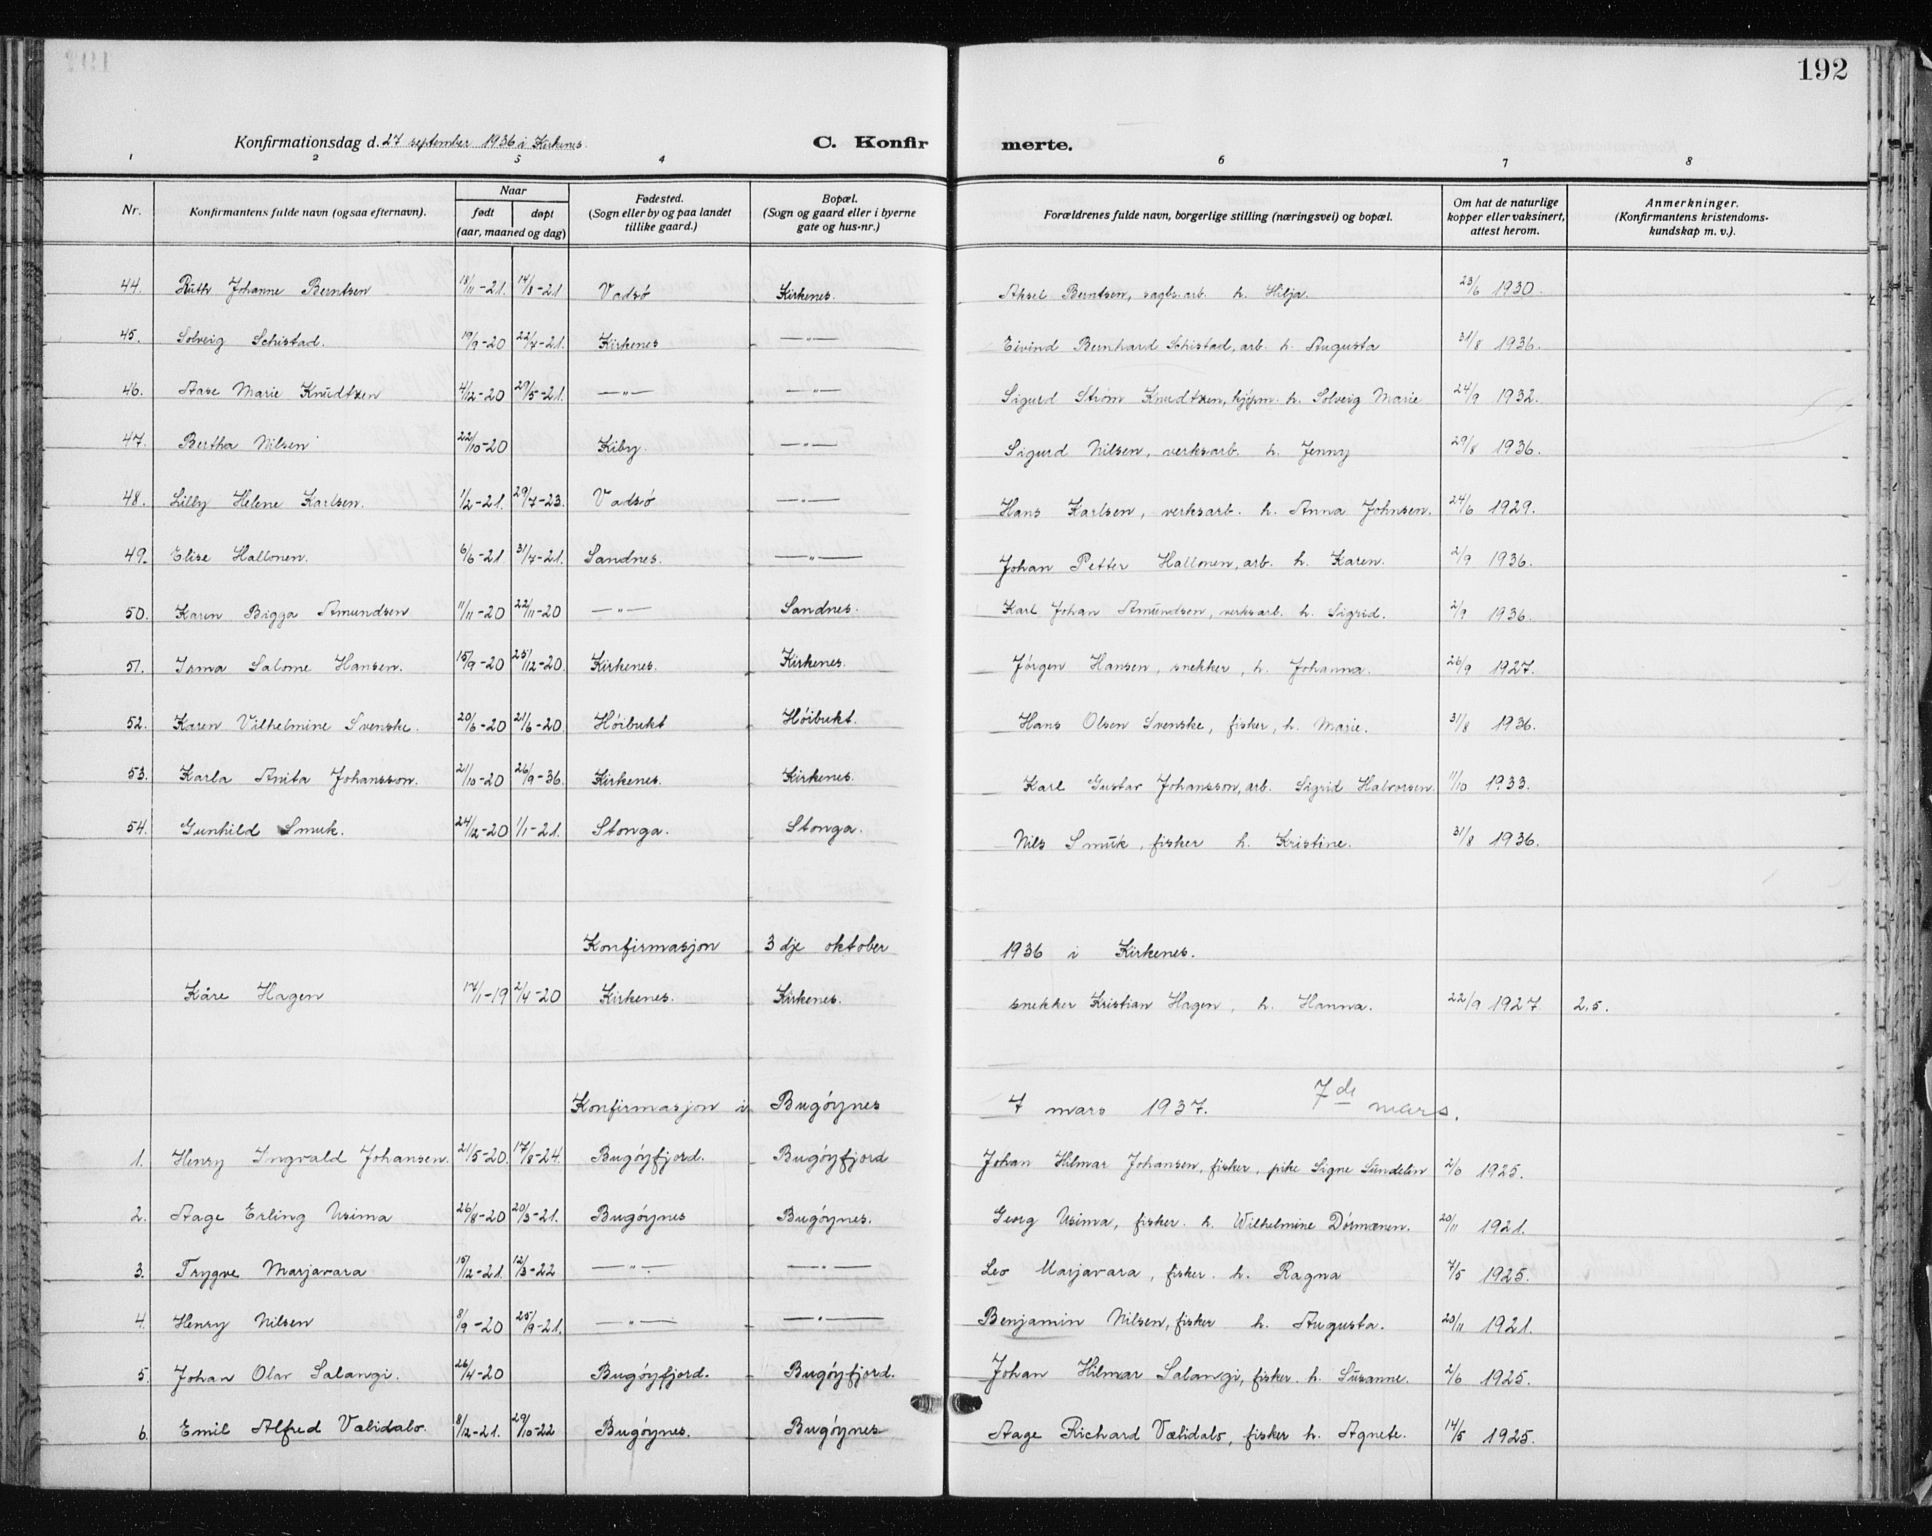 192
Konfirmationsdag d. 27 september 1936 i Kirkenes. C. Konfirmerte.
1 2 3 4 6 7 8
Nr. Konfirmantens fulde navn (ogsaa efternavn). Naar født døpt (aar, maaned og dag) Fødested. (Sogn eller by og paa landet tillike gaard.) Bopæl. (Sogn og gaard eller i byerne gate og hus-nr.) Forældrenes fulde navn, borgerlige stilling (næringsvei) og bopæl. Om hat de naturlige kopper eller vaksinert, attest herom. Anmerkninger. (Konfirmantens kristendomskundskap m. v.).
44. Ruth Johanne Berntsen 18/11-21. 14/8-21 Vadsø Kirkenes. Aksel Berntsen, sagbr.arb. h. Hilja. 23/6 1930.
45. Solveig Schistad. 19/9-20 22/7-21. Kirkenes —"— Eivind Bernhard Schistad, arb. h. Augusta 31/8 1936.
46. Aase Marie Knudtzen 4/12-20 29/5-21. —"— —"— Sigurd Strøm Knudtzen, kjøpm. h. Solveig Marie 24/9 1932.
47. Bertha Nilsen 22/10-20 Kiby. —"— Sigurd Nilsen, verksarb. h. Jenny 29/8 1936.
48. Lilly Helene Karlsen. 1/2-21. 29/7-23. Vadsø —"— Hans Karlsen, verksarb. h. Anna Johnsen. 24/6 1929.
49. Elise Hallonen. 6/6-21. 31/7-21. Sandnes. —"— Johan Petter Hallonen, arb. h. Karen. 2/9 1936.
50. Karen Bigga Amundsen 11/11-20 22/11-20 —"— Sandnes. Karl Johan Amundsen, verksarb. h. Sigrid. 2/9 1936.
51. Irma Salome Hansen. 15/9-20 25/12-20. Kirkenes. Kirkenes. Jørgen Hansen, snekker, h. Johanna. 26/9 1927.
52. Karen Vilhelmine Svenske. 20/6-20 21/6-20. Høibukt Høibukt. Hans Olsen Svenske, fisker, h. Marie. 31/8 1936.
53. Karla Anita Johansson. 21/10-20 26/9-36. Kirkenes. Kirkenes. Karl Gustav Johansson, arb. Sigrid Halvorsen. 11/10 1933.
54. Gunhild Smuk. 24/12-20 1/1-21. Stonga. Stonga. Nils Smuk, fisker h. Kristine. 31/8 1936.
Konfirmasjon 3dje oktober 1936 i Kirkenes.
Kåre Hagen 17/1-19 2/4-20 Kirkenes. Kirkenes. snekker Kristian Hagen, h. Hanna. 22/9 1927. 2,5.
Konfirmasjon i Bugøynes 7 mars 1937. 7de mars.
1. Henry Ingvald Johansen. 21/5-20. 17/8-24. Bugøyfjord. Bugøyfjord Johan Hilmar Johansen, fisker, pike Signe Sundelin 2/6 1925.
2. Aage Erling Usima 26/8-20 20/3-21. Bugøynes Bugøynes. Georg Usima, fisker. h. Wilhelmine Dørmænen. 20/11 1921.
3. Trygve Marjavara 15/12-21. 12/3-22 —"— —"— Leo Marjavara, fisker. h. Ragna 7/5 1925.
4. Henry Nilsen 8/9-20 25/9-21. —"— —"— Benjamin Nilsen, fisker h. Augusta. 20/11 1921.
5. Johan Olav Salangi. 26/4-20 Bugøyfjord. Bugøyfjord. Johan Hilmar Salangi, fisker. h. Susanne. 2/6 1925.
6. Emil Alfred Vælidalo. 8/12-21. 29/10-22 Bugøynes. Bugøynes Aage Richard Vælidalo, fisker h. Agnete. 14/5 1925.